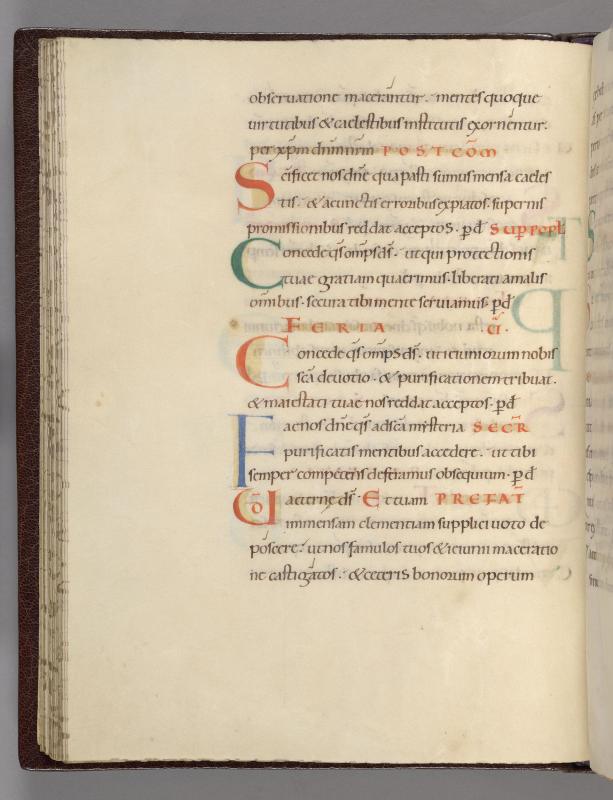 obseruatione macerantur. mentes quoque
uirtutibus & caelestibus institutis exornentur.
per xp̄m dn̄m nr̄m POST CŌM
Sc̄ificet nos dn̄e qua pasti sumus mensa caeles
tis. & a cunctis erroribus expiatos. supernis
promissionibus reddat acceptos. p̄ d̄ SUP POPL̄
Concede qs̄ omps̄ ds̄. ut qui protectionis
tuae gratiam quaerimus. liberati a malis
omībus. secura tibi mente seruiamus. p̄ d̄
FERIA UI.
Concede qs̄ omps̄ ds̄. ut ieiuniorum nobis
sc̄a deuotio. & purificationem tribuat.
& maiestati tuae nos reddat acceptos. p̄ d̄
Fac nos dn̄e qs̄ ad sc̄a mysteria SECR̄
purificatis mentibus accedere. ut tibi
semper competens deferamus obsequium. p̄ d̄
UD̄ aeterne ds̄. Et tuam PREFAT̄
immensam clementiam supplici uoto de
poscere. ut nos famulos tuos & ieiunii maceratio
ne castigatos. & ceteris bonorum operum